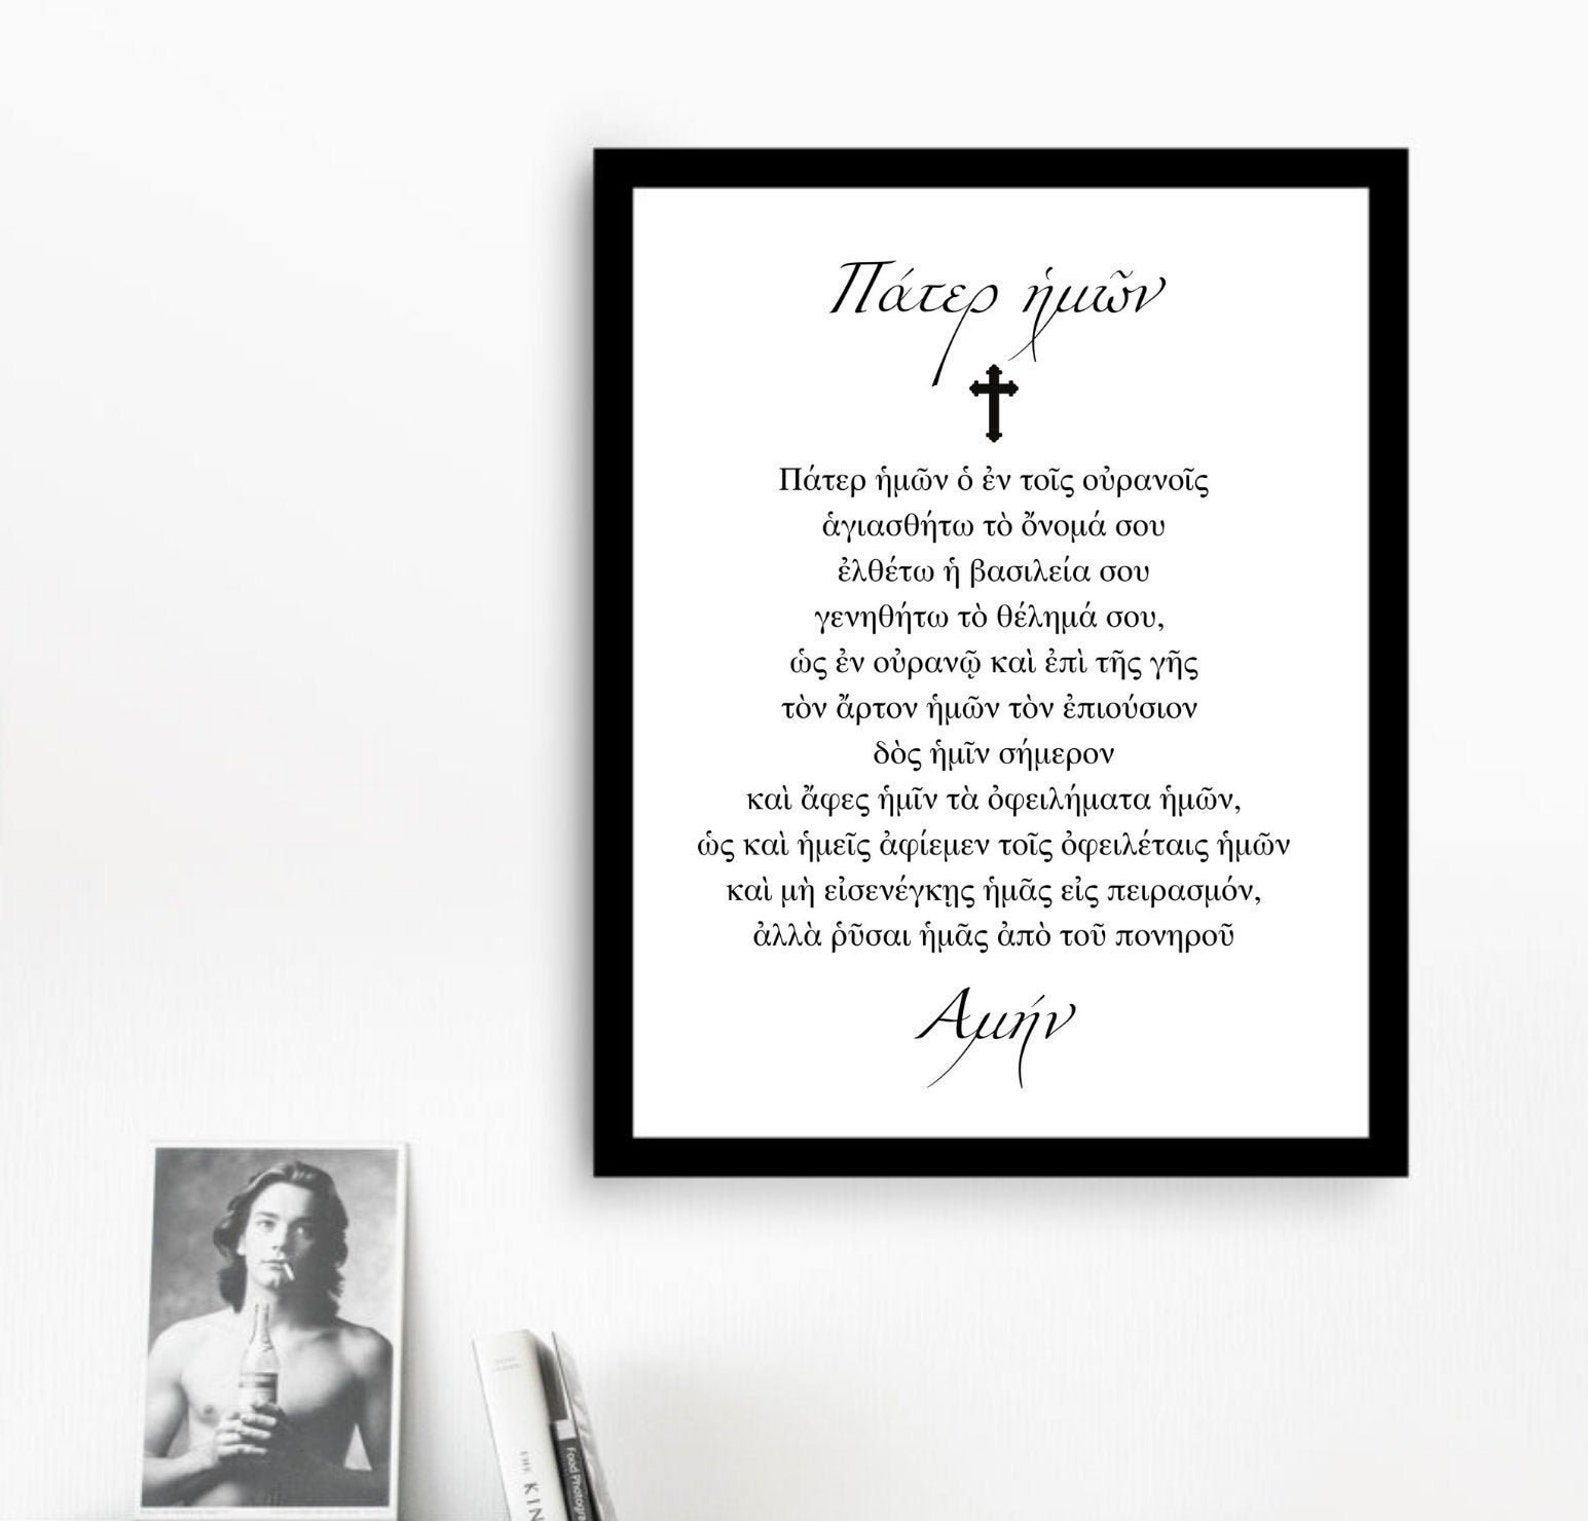 Πάτερ ἡμῶν
Πάτερ ἡμῶν ὁ ἐν τοῖς οὐρανοῖς
ἁγιασθήτω τὸ ὄνομά σου
ἐλθέτω ἡ βασιλεία σου
γενηθήτω τὸ θέλημά σου,
ὡς ἐν οὐρανῷ καὶ ἐπὶ τῆς γῆς
τὸν ἄρτον ἡμῶν τὸν ἐπιούσιον
δὸς ἡμῖν σήμερον
καὶ ἄφες ἡμῖν τὰ ὀφειλήματα ἡμῶν,
ὡς καὶ ἡμεῖς ἀφίεμεν τοῖς ὀφειλέταις ἡμῶν
καὶ μὴ εἰσενέγκῃς ἡμᾶς εἰς πειρασμόν,
ἀλλὰ ῥῦσαι ἡμᾶς ἀπὸ τοῦ πονηροῦ
Αμήν
THE KIN
Food Photogra